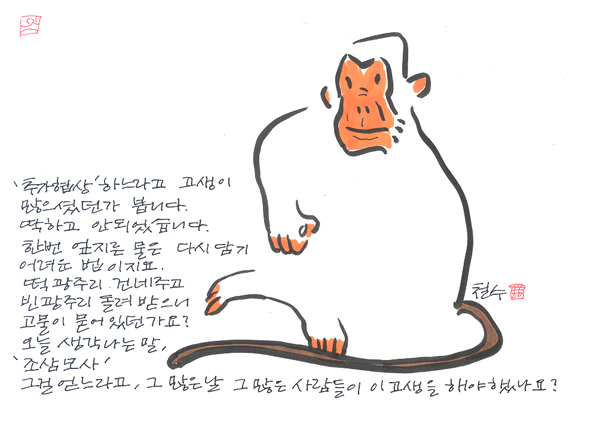 '추가협상'하느라고 고생이
많으셨던가 봅니다.
딱하고 안되었습니다.
한번 엎지른 물은 다시 담기
어려운 법이지요.
떡 광주리 건네주고
빈 광주리 돌려 받으니
고물이 묻어 있던가요?
오늘 생각나는 말,
'조삼모사'
그걸 얻느라고, 그 많은 날 그 많은 사람들이 이 고생을 해야 했나요?
철수